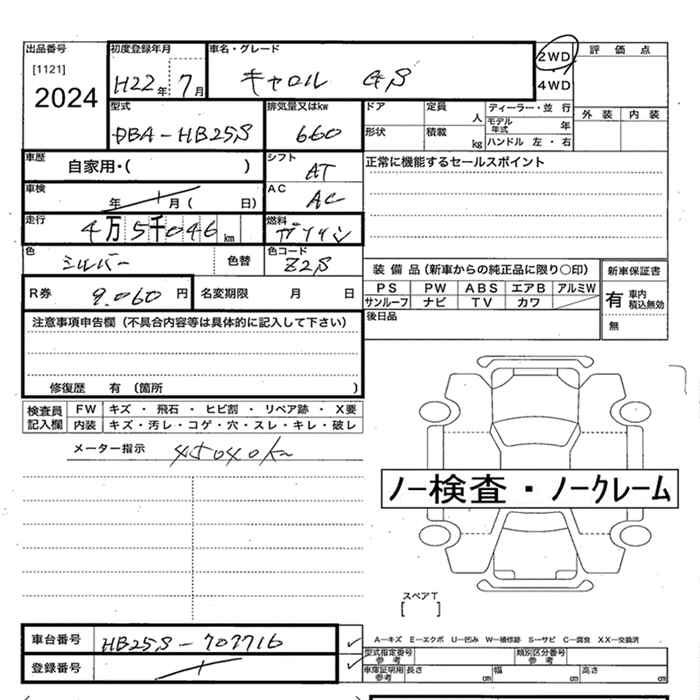 出品番号 初度登録年月 車名・グレード 2WD 評価点
[1121] H22年 7月 キャロル GS 4WD
2024
型式 排気量又はkw ドア 定員 人 ディーラー・並行 外装 内装
DBA-HB25S 660 形状 積載 kg モデル年式 年
ハンドル 左・右
車歴 自家用・( ) シフト AT 正常に機能するセールスポイント
車検 年 月( 日) AC AC
走行 4万5千046km 燃料 ガソリン
色 シルバー 色替 色コード Z2S
装備品(新車からの純正品に限り○印) 新車保証書
R券 9.060円 名変期限 月 日 PS PW ABS エアB アルミW 有 車内積込無効
サンルーフ ナビ TV カワ
注意事項申告欄(不具合内容等は具体的に記入して下さい) 後日品 無
修復歴 有 (箇所 )
検査員記入欄 FW キズ・飛石・ヒビ割・リペア跡・X要
内装 キズ・汚レ・コゲ・穴・スレ・キレ・破レ
メーター指示 45040k
ノー検査・ノークレーム
スペアT
[ ]
車台番号 HB25S-707716 A—キズ E—エクボ U—凹み W—補修跡 S—サビ C—腐食 XX—交換済
型式指定番号 参考 類別区分番号 参考
登録番号 車庫証明用参考 長さ cm 幅 cm 高さ cm